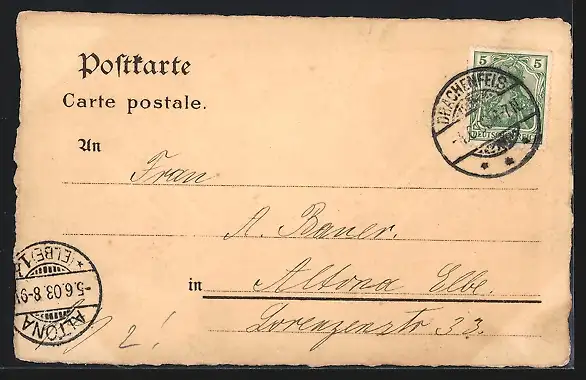 Postkarte
Carte postale.
5 5
DEUTSCHES
DRACHENFELS
7-N.
An
Frau
A. Bauer.
in Altona Elbe.
Lorenzenstr 33.
2!
*(ELBE)1
-5.6.03.8-9V
ALTONA